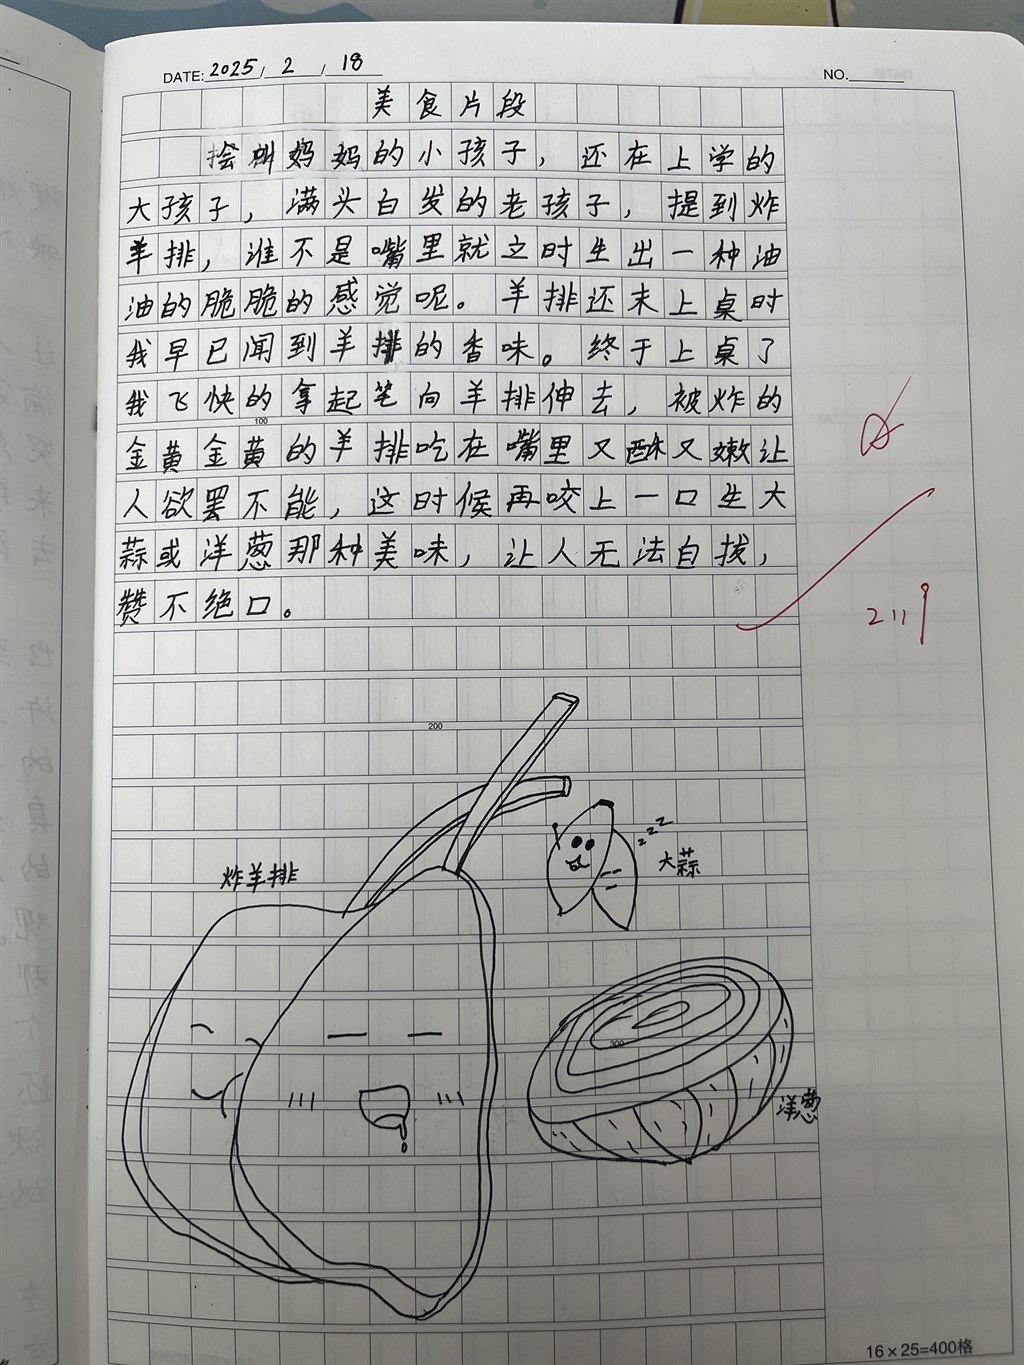 DATE: 2025 / 2 / 18
NO.
美食片段
会叫妈妈的小孩子，还在上学的
大孩子，满头白发的老孩子，提到炸
羊排，谁不是嘴里就立时生出一种油
油的脆脆的感觉呢。羊排还未上桌时
我早已闻到羊排的香味。终于上桌了
我飞快的拿起筷向羊排伸去，被炸的
金黄金黄的羊排吃在嘴里又酥又嫩让
人欲罢不能，这时候再咬上一口生大
蒜或洋葱那种美味，让人无法自拔，
赞不绝口。
100
200
炸羊排
大蒜
zzz
300
洋葱
211
16×25=400格